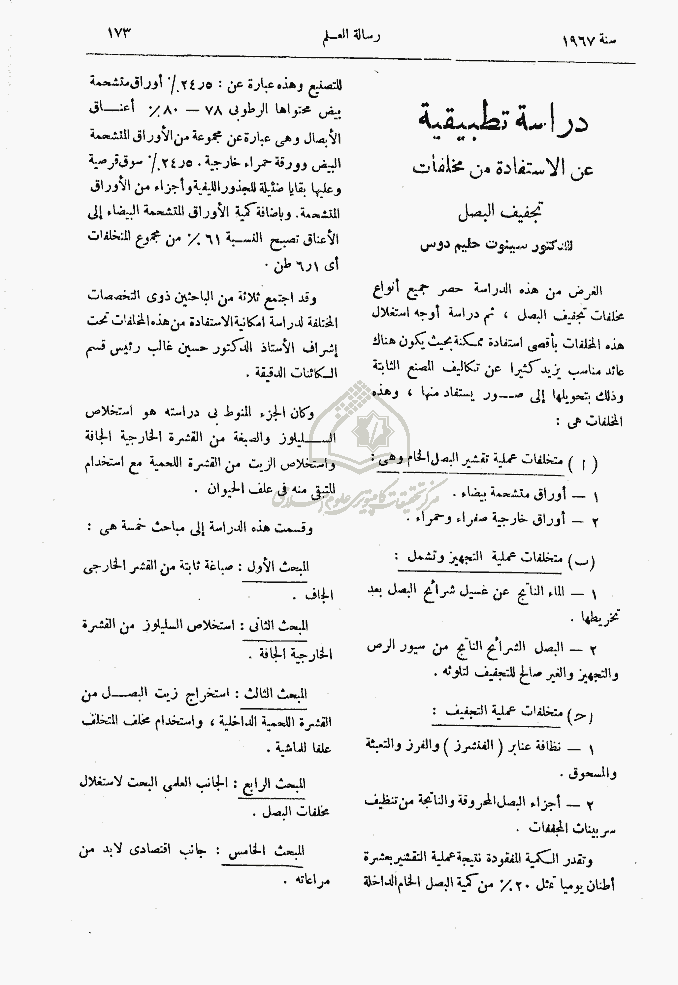 سنة ١٩٦٧
رسالة العـلم
١٧٣
دراسة تطبيقية
عن الاستفادة من مخلفات
تجفيف البصل
للدكتور سينوت حليم دوس
الغرض من هذه الدراسة حصر جميع أنواع
مخلفات تجفيف البصل ، ثم دراسة أوجه استغلال
هذه المخلفات بأقصى استفادة ممكنة بحيث يكون هناك
عائد مناسب يزيد كثيرا عن تكاليف المصنع الثابتة
وذلك بتحويلها إلى صــور يستفاد منها ، وهذه
المخلفات هى :
( ا ) متخلفات عملية تقشير البصل الخام وهى :
١ — أوراق متشحمة بيضاء .
٢ — أوراق خارجية صفراء وحمراء .
(ب) متخلفات عملية التجهيز وتشمل :
١ — الماء الناتج عن غسيل شرائح البصل بعد
تخريطها .
٢ — البصل الشرائح الناتج من سيور الرص
والتجهيز والغير صالح للتجفيف لتلوثه .
(ح) متخلفات عملية التجفيف :
١ — نظافة عنابر ( الفنشرز ) والفرز والتعبئة
والمسحوق .
٢ — أجزاء البصل المحروقة والناتجة من تنظيف
سربينات المجففات .
وتقدر الـكمية المفقودة نتيجة عملية التقشير بعشرة
أطنان يوميا تمثل ٢٠ ٪ من كمية البصل الخام الداخلة
للتصنيع وهذه عبارة عن : ٢٤٫٥ ٪ أوراق متشحمة
بيض محتواها الرطوبى ٧٨ — ٨٠ ٪ أعنــاق
الأبصال وهى عبارة عن مجموعة من الأوراق المتشحمة
البيض وورقة حمراء خارجية . ٢٤٫٥ ٪ سوق قرصية
وعليها بقايا ضئيلة للجذور الليفية وأجزاء من الأوراق
المتشحمة. وباضافة كمية الأوراق المتشحمة البيضاء إلى
الأعناق تصبح النسبة ٦١ ٪ من مجموع المتخلفات
أى ٦٫١ طن .
وقد اجتمع ثلاثة من الباحثين ذوى التخصصات
المختلفة لدراسة امكانية الاستفادة من هذه المخلفات تحت
إشراف الأستاذ الدكتور حسين غالب رئيس قسم
الـكائنات الدقيقة .
وكان الجزء المنوط بى دراسته هو استخلاص
الســليلوز والصبغة من القشرة الخارجية الجافة
واستخلاص الزيت من القشرة اللحمية مع استخدام
المتبقى منه فى علف الحيوان .
وقسمت هذه الدراسة إلى مباحث خمسة هى :
المبحث الأول : صباغة ثابتة من القشر الخارجى
الجاف .
المبحث الثانى : استخلاص السليلوز من القشرة
الخارجية الجافة .
المبحث الثالث : استخراج زيت البصــل من
القشرة اللحمية الداخلية ، واستخدام مخلف المتخلف
علفا للماشية .
المبحث الرابع : الجانب العلمى البحت لاستغلال
مخلفات البصل .
المبحث الخامس : جانب اقتصادى لابد من
مراعاته .
مرکز تحقیقات کامپیوتری علوم اسلامی